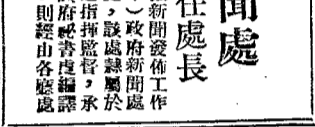 聞處
任處長
新聞發佈工作
）政府新聞處
，該處隸屬於
指揮監督，承
府祕書處編譯
則經由各廳處